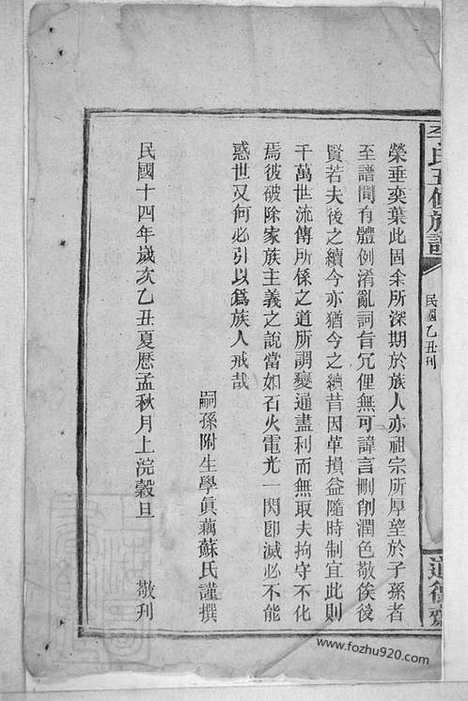 氏五修族譜
民國乙丑刊
榮垂奕葉此固余所深期於族人亦祖宗所厚望於子孫者
至譜間有體例淆亂詞旨冗俚無可諱言刪削潤色敬俟後
賢若夫後之續今亦猶今之續昔因革損益隨時制宜此則
千萬世流傳所係之道所謂變通盡利而無取夫拘守不化
焉彼破除家族主義之說當如石火電光一閃即滅必不能
惑世又何必引以爲族人戒哉
嗣孫附生學眞藕蘇氏謹撰
民國十四年歲次乙丑夏歷孟秋月上浣穀旦
敬刊
www.fozhu920.com